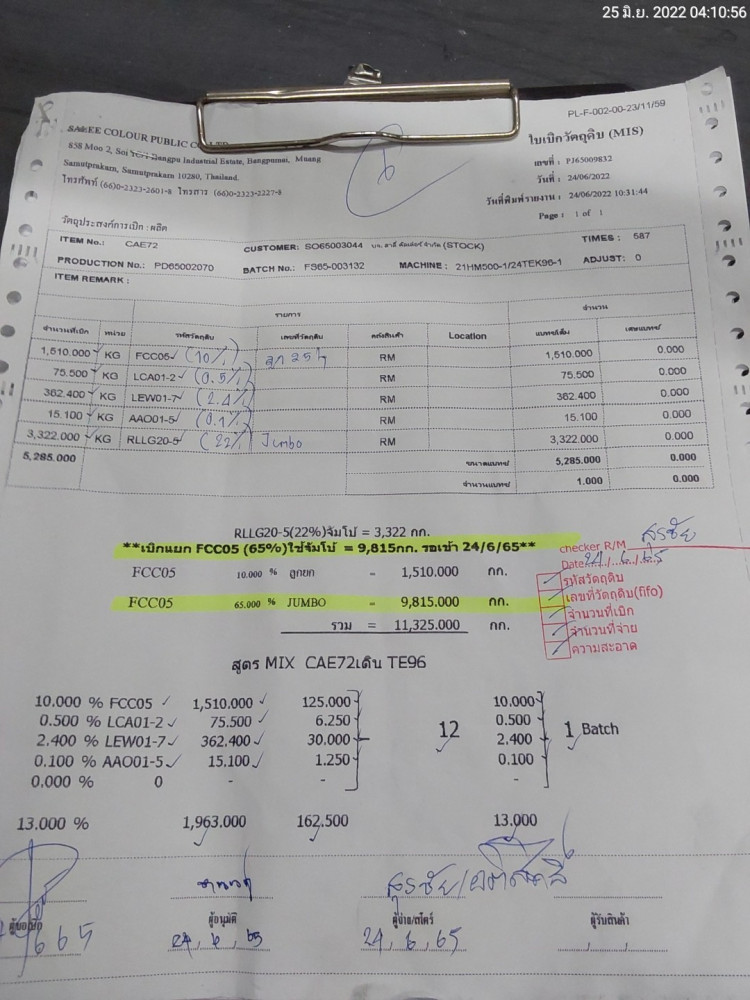 25 มิ.ย. 2022 04:10:56
PL-F-002-00-23/11/59
SALEE COLOUR PUBLIC
858 Moo 2, Soi Bangpu Industrial Estate, Bangpumai, Muang
Samutprakarn, Samutprakarn 10280, Thailand.
โทรศัพท์ (66)0-2323-2601-8 โทรสาร (66)0-2323-2227-8
ใบเบิกวัตถุดิบ (MIS)
เลขที่ : PJ65009832
วันที่ : 24/06/2022
วันที่พิมพ์รายงาน : 24/06/2022 10:31:44
Page : 1 of 1
วัตถุประสงค์การเบิก : ผลิต
ITEM No.: CAE72 CUSTOMER: SO65003044 บจ. สาลี่ คัลเล่อร์ จำกัด (STOCK) TIMES : 587
PRODUCTION No.: PD65002070 BATCH No.: FS65-003132 MACHINE : 21HM500-1/24TEK96-1 ADJUST: 0
ITEM REMARK :
รายการ จำนวน
จำนวนที่เบิก หน่วย รหัสวัตถุดิบ เลขที่วัตถุดิบ คลังสินค้า Location แบทช์เต็ม เศษแบทช์
1,510.000 KG FCC05 (10%) ลูก 25 RM 1,510.000 0.000
75.500 KG LCA01-2 (0.5%) RM 75.500 0.000
362.400 KG LEW01-7 (2.4%) RM 362.400 0.000
15.100 KG AAO01-5 (0.1%) RM 15.100 0.000
3,322.000 KG RLLG20-5 (22%) Jumbo RM 3,322.000 0.000
5,285.000 ขนาดแบทช์ 5,285.000 0.000
จำนวนแบทช์ 1.000 0.000
RLLG20-5(22%)จัมโบ้ = 3,322 กก.
**เบิกแยก FCC05 (65%)ใช้จัมโบ้ = 9,815กก. รอเข้า 24/6/65**
FCC05 10.000 % ลูกยก = 1,510.000 กก.
FCC05 65.000 % JUMBO = 9,815.000 กก.
รวม = 11,325.000 กก.
checker R/M สุรชัย
Date 24/6/65
รหัสวัตถุดิบ
เลขที่วัตถุดิบ(fifo)
จำนวนที่เบิก
จำนวนที่จ่าย
ความสะอาด
สูตร MIX CAE72เดิน TE96
10.000 % FCC05 1,510.000 125.000 10.000
0.500 % LCA01-2 75.500 6.250 12 0.500 1 Batch
2.400 % LEW01-7 362.400 30.000 2.400
0.100 % AAO01-5 15.100 1.250 0.100
0.000 % 0 - - -
13.000 % 1,963.000 162.500 13.000
สุรชัย/
ผู้อนุมัติ ผู้จ่าย/สโตร์ ผู้รับสินค้า
24, 6, 65 24, 6, 65